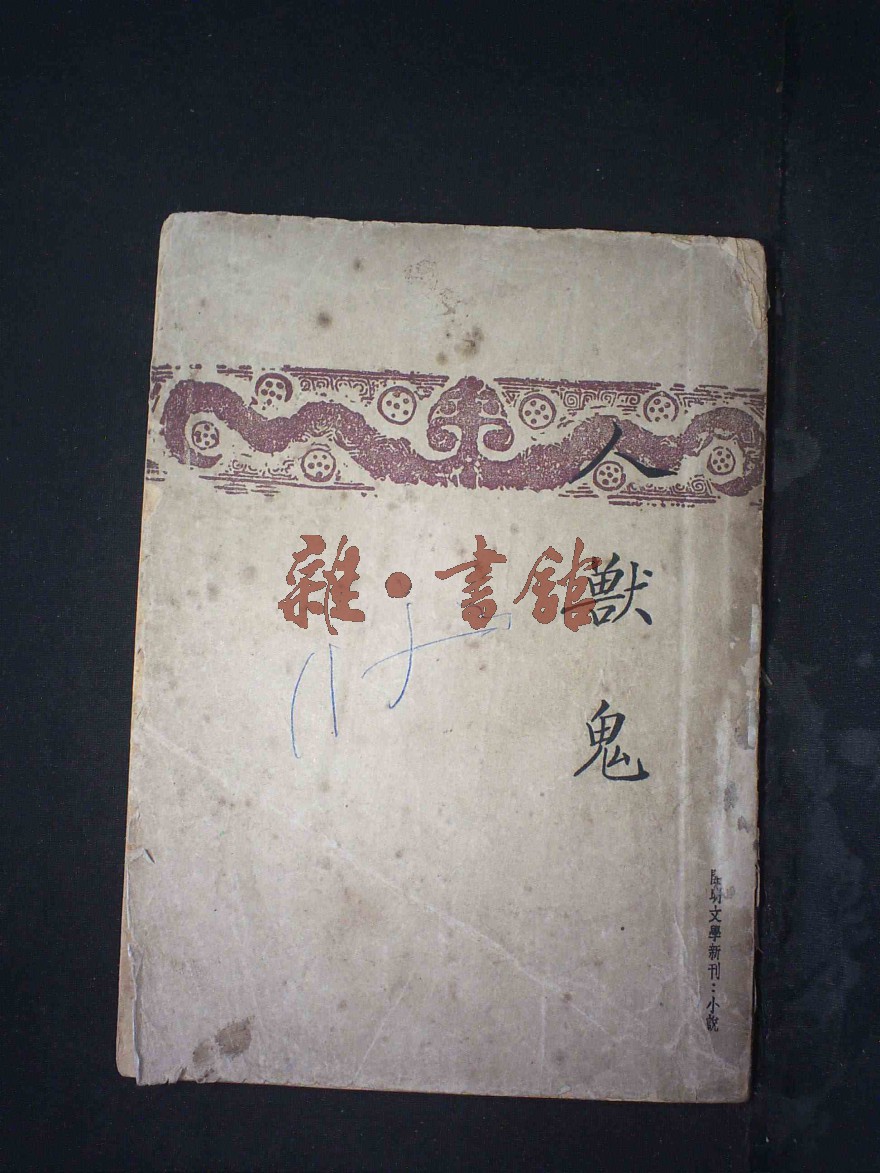 人獸鬼
雜·書館
開明文學新刊：小說